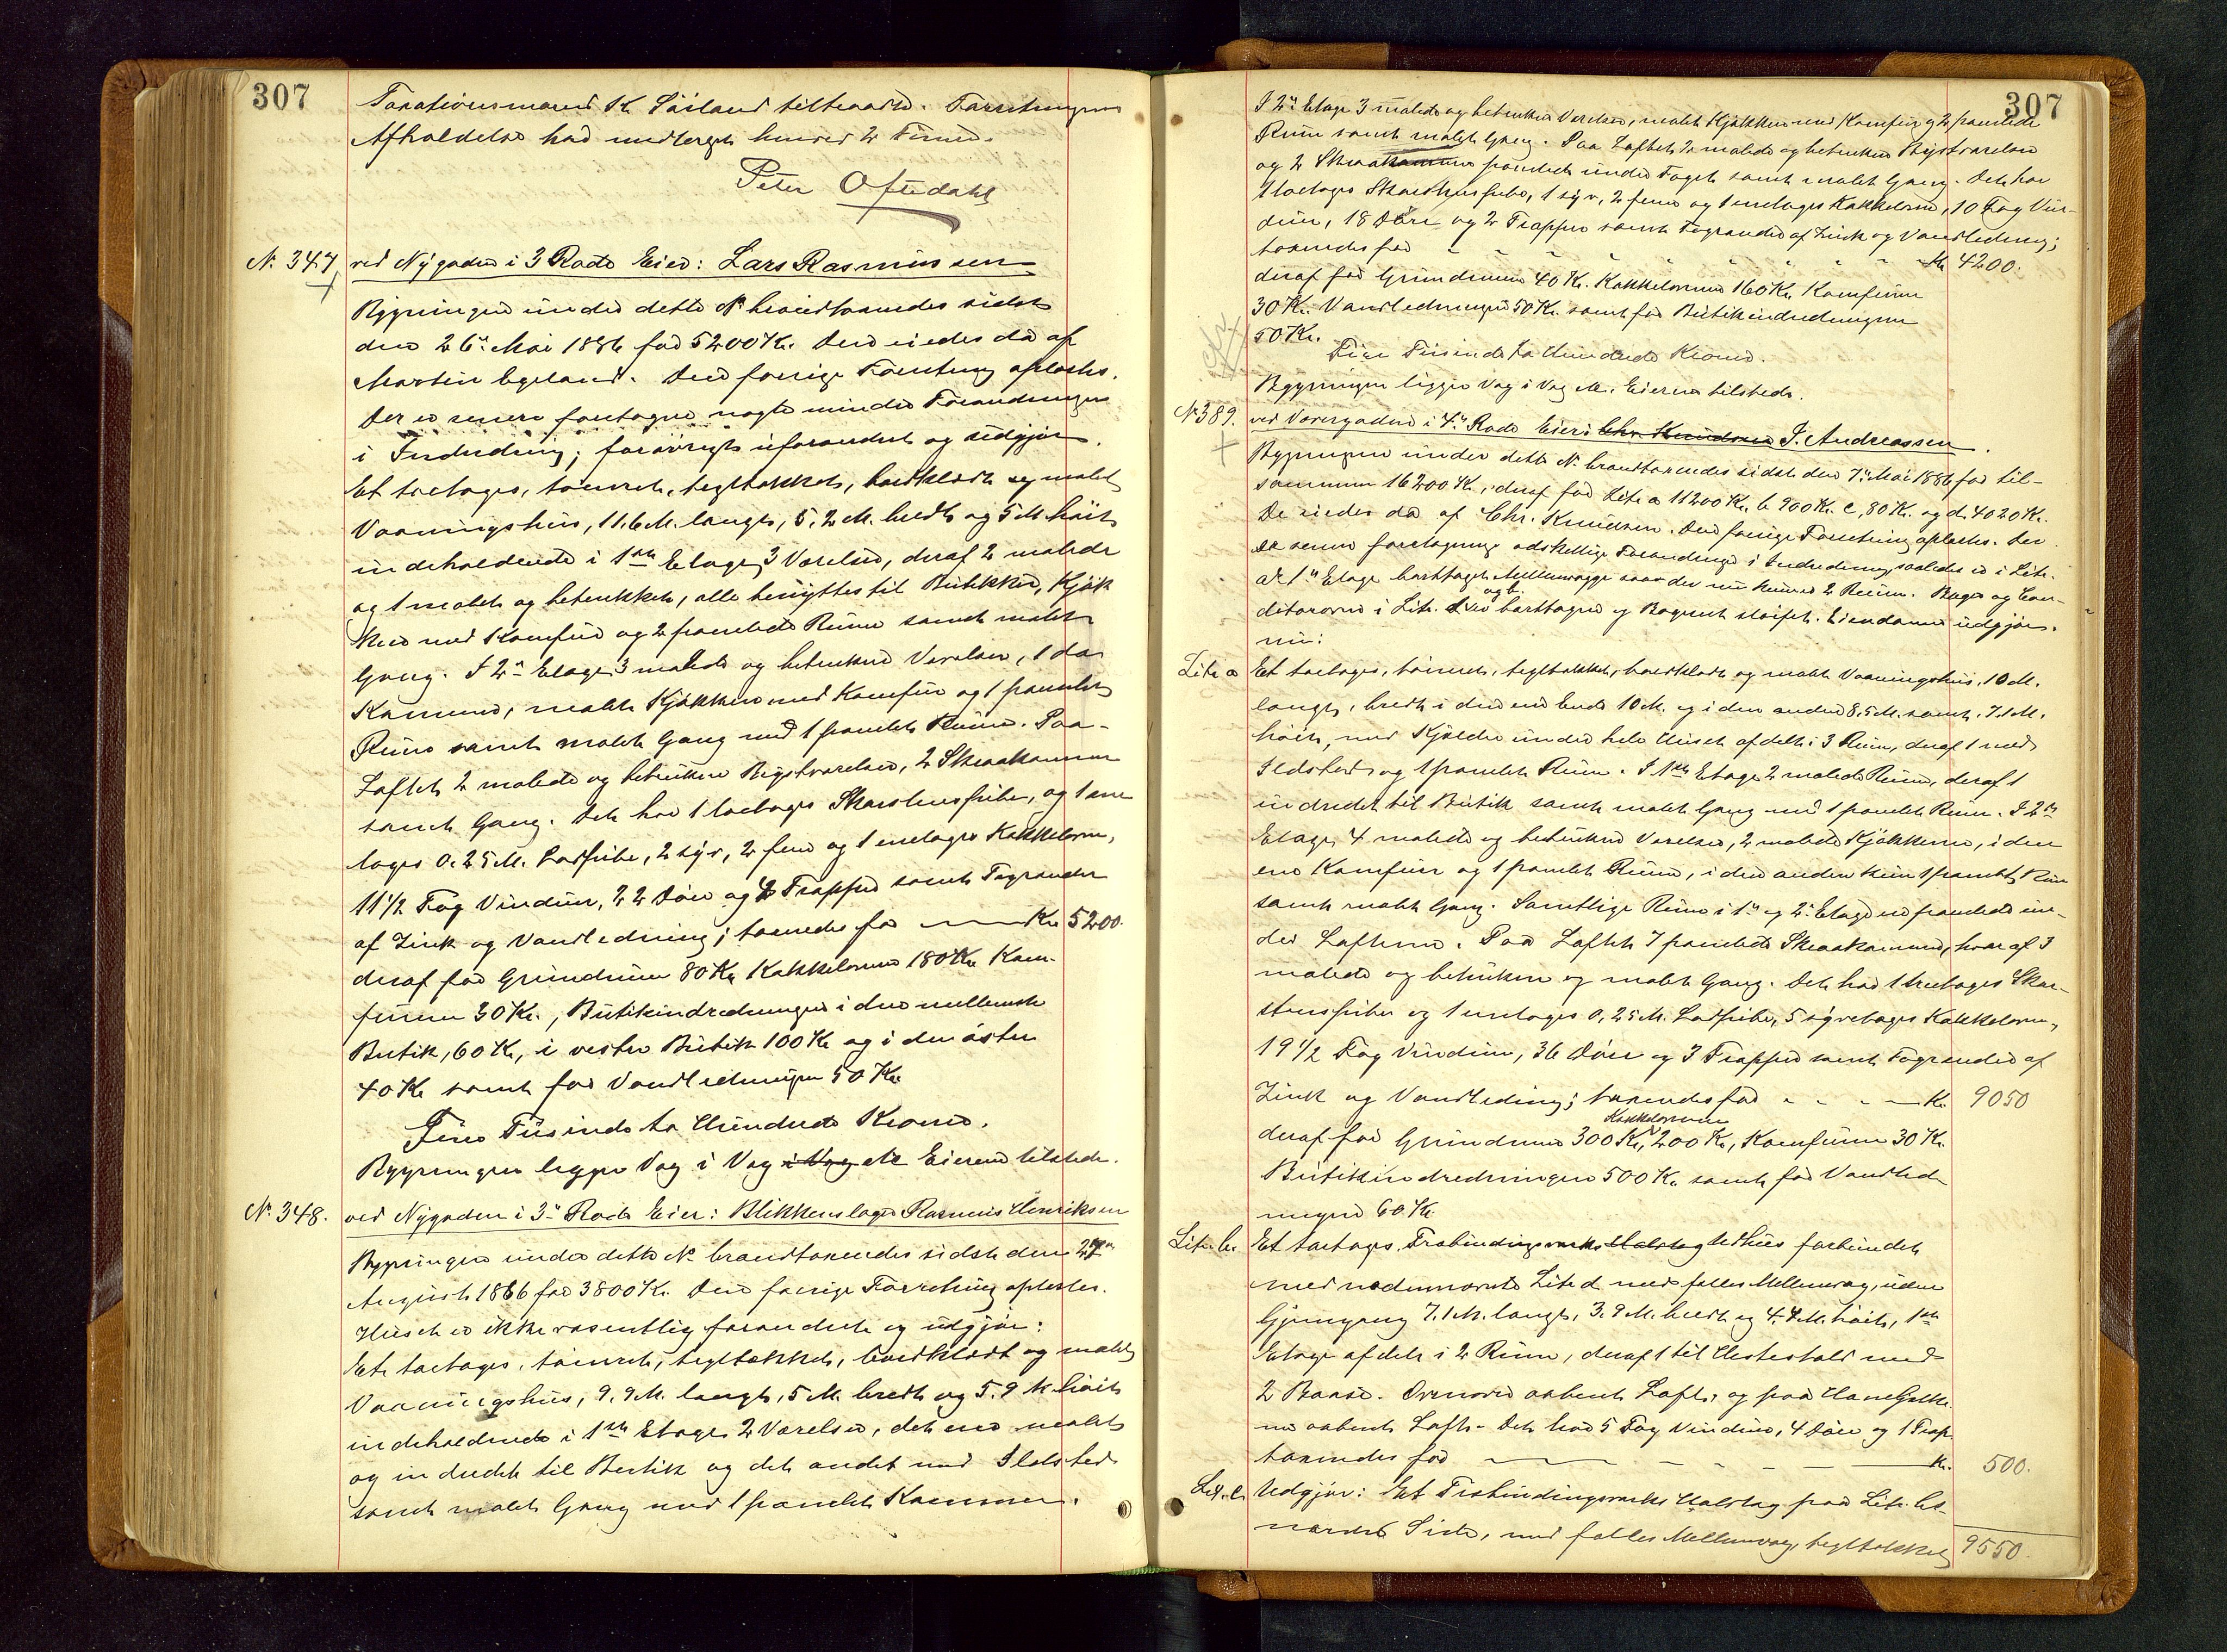 307
Taxationsmand K. Søiland tiltraadte. Forretningens
Afholdelse had medtaget henved 2 Timer.
Peter Oftedahl
N. 347, ved Nygaden i 3 Rode Eier: Lars Rasmussen
Bygningen under dette N. brandtaxeredes sidst
den 26de Mai 1886 for 5200 Kr. Den eiedes da af
Martin Egeland. Den forrige Forretning oplæstes.
Der er senere foretagne nogle mindre Forandringer
i Indredning; forøvrigt uforandret og udgjør.
Et toetages, tømret, tegltækket, bordklædt og malet
Vaaningshus, 11.6 M. langt, 5,2 M. bredt og 5 M høit
indeholdende i 1ste Etage 3 Værelser, deraf 2 malede
og 1 malet og betrukket, alle benyttes til Butikker, Kjøk
ken med Komfur og 2 panelede Rum samt malet
Gang. I 2den Etage 3 malede og betrukne Værelser, 1 do
Kammer, malet Kjøkken med Komfur og 1 panelet
Rum samt malet Gang med 1 panelet Rum. Paa
Loftet 2 malede og betrukne Kvistværelser, 2 Skraakammer
samt Gang. Det har 1 toetages Skorstenspibe, og 1 een
tages 0.25 M. Lodpibe, 2 syv, 2 fem og 1 enetages Kakkelovn,
11 1/2 Fag Vinduer, 22 Døre og 2 Trapper samt Tagrender
af Zink og Vandledning; taxeredes for Kr. 5200.
deraf for Grundmur 80 Kr. Kakkelovne 180 Kr. Kom-
furen 30 Kr., Butikindredningen i den mellemste
Butik, 60 Kr., i vestre Butik 100 Kr. og i den østre
40 Kr. samt for Vandledningen 50 Kr.
Fem Tusinde to Hundrede Kroner.
Bygningen ligger Væg i Væg i Væg etc Eieren tilstede.
N. 348. ved Nygaden i 3de Rode Eier: Blikkenslager Rasmus Henriksen
Bygningen under dette N. brandtaxeredes sidst den 27de
August 1886 for 3800 Kr. Den forrige Forretning oplæstes.
Huset er ikke væsentlig forandret og udgjør:
Et toetages, tømret, tegltækket, bordklædt og malet
Vaaningshus, 9.9 M. langt, 5 M. bredt og 5.9 M. høit
indeholdende i 1ste Etage 2 Værelser, det ene malet
og indredet til Butik og det andet med Ildsted
samt malet Gang med 1 panelet Kammer.
307
I 2den Etage 3 malede og betrukne Værelser, malet Kjøkken med Komfur og 2 panelede
Rum samt malet Gang. Paa Loftet 2 malede og betrukne Kvistværelser
og 2 Skraakammer panelede under Taget samt malet Gang. Det har
1 toetages Skorstenspibe, 1 syv, 2 fem og 1 enetages Kakkelovn, 10 Fag Vin-
duer, 18 Døre og 2 Trapper samt Tagrender af Zink og Vandledning;
taxeredes for Kr. 4200.
deraf for Grundmur 40 Kr. Kakkelovne 160 Kr. Komfuren
30 Kr. Vandledningen 50 Kr. samt for Butikindredningen
50 Kr.
Fire Tusinde to Hundrede Kroner.
Bygningen ligger Væg i Væg etc. Eieren tilstede.
N. 389. ved Torvegaden i 4de Rode Eier: Chr. Knudsen J. Andreassen.
Bygningen under dette N. brandtaxeredes sidst den 7de Mai 1886 for til-
sammen 16200 Kr., deraf for Litr. a 11200 Kr., b 900 Kr. c, 80 Kr. og d. 4020 Kr.
De eiedes da af Chr. Knudsen. Den forrige Forretning oplæstes. Der
er senere foretagne adskillige Forandringer i Indredning saaledes er i Litr.
a's 1ste Etage borttaget Mellemvægge saa der nu kun er 2 Rum. Bager og Con-
ditorovne i Litr. d og b. er borttagne og Bageriet sløifet. Eiendommen udgjør
nu:
Litr. a Et toetages, tømret, tegltækket, bordklædt og malet Vaaningshus, 10 M.
langt, bredt i den ene Ende 10 M. og i den anden 8.5 M. samt 7.1 M.
høit, med Kjælder under hele Huset afdelt i 3 Rum, deraf 1 med
Ildsted og 1 panelet Rum. I 1ste Etage 2 malede Rum, deraf 1
indredet til Butik samt malet Gang med 1 panelet Rum. I 2den
Etage 4 malede og betrukne Værelser, 2 malede Kjøkkener, i den
ene Komfur og 1 panelet Rum, i den anden kun 1 panelet Rum
samt malet Gang. Samtlige Rum i 1ste og 2den Etage er panelede un-
der Lofterne. Paa Loftet 7 panelede Skraakammer, hvoraf 3
malede og betrukne og malet Gang. Det har 1 treetages Skor-
stenspibe og 1 eenetages 0,25 M. Lodpibe, 5 syvetages Kakkelovn,
19 1/2 Fag Vinduer, 36 Døre og 3 Trapper samt Tagrender af
Zink og Vandledning; taxeredes for Kr. 9050
deraf for Grundmur 300 Kr., Kakkelovnene 200 Kr., Komfuren 30 Kr.
Butikindredningen 500 Kr. samt for Vandled
ningen 60 Kr.
Litr. b. Et toetages Trebindingsværks Halvtag Udhus forbundet
med nedennævnte Litr. d med fælles Mellemvæg, uden
Gjennemgang 7.1 M. langt, 3.9 M. bredt og 4.4 M. høit, 1ste
Etage afdelt i 2 Rum, deraf 1 til Hestestald med
2 Baase. Ovenover aabent Loft, og paa Hanebjælke
ne aabent Loft. Det har 5 Fag Vinduer, 4 Døre og 1 Trap.
taxeredes for Kr. 500.
Litr. c. Udgjør: Et Trebindingsværks Halvtag paa Litr. b's
nordre Side, med fælles Mellemvæg, tegltækket
9550.